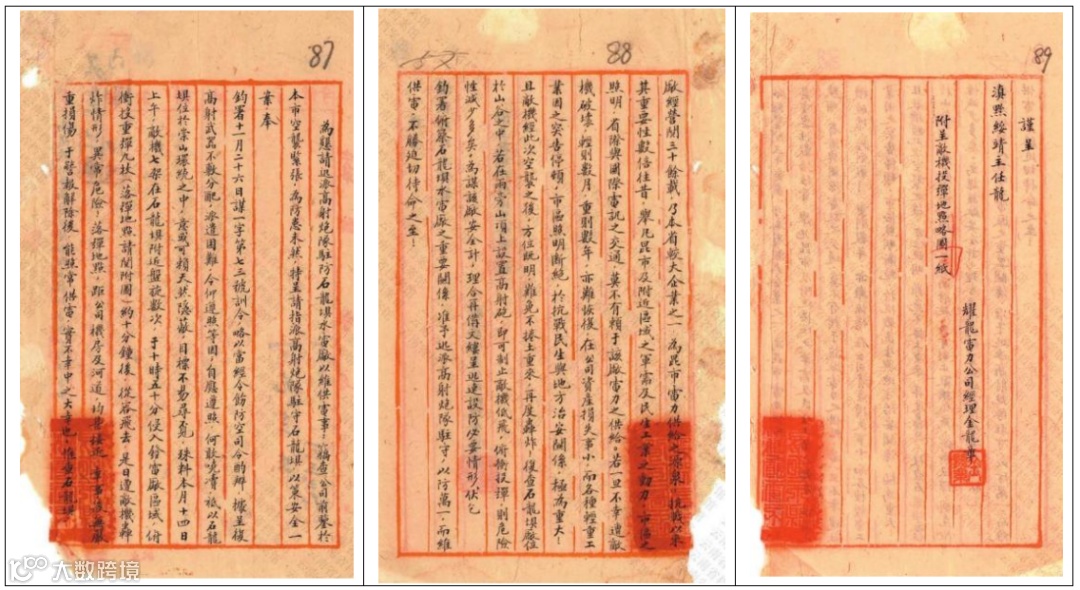 87
為懇請迅派高射炮隊駐防石龍壩水電廠以維供電事：竊查公司前鑒於
本市空襲緊張，為防患未然，特呈請指派高射炮隊駐守石龍壩，以策安全一
案，奉
鈞署十一月二十六日謀一字第七三號訓令略以當經令飭防空司令酌辦，據呈復
高射武器不敷分配，派遣困難，令仰遵照等因，自應遵照，何敢曉瀆，衹以石龍
壩位於崇山環繞之中，意或可賴天然隱蔽，目標不易尋覓，殊料本月十四日
上午，敵機七架在石龍壩附近盤旋數次，于十時五十分侵入發電廠區域，俯
衝投重彈九枚，（落彈地點請閱附圖）約十分鐘後，從容飛去，是日遭敵機轟
炸情形，異常危險，落彈地點，距公司機房及河道，均甚接近，幸無嚴
重損傷，于警報解除後，能照常供電，實不幸中之大幸也，惟查石龍壩
88
廠經營閱三十餘載，乃本省較大企業之一，為昆市電力供給之源泉，抗戰以來
其重要性數倍往昔，舉凡昆市及附近區域之軍需及民生工業之動力，市區之
照明，有際與國際電訊之交通，莫不有賴于該廠電力之供給，若一旦不幸遭敵
機破壞，輕則數月，重則數年，亦難恢復，在公司資產損失事小，而各種輕重工
業因之宣告停頓，市區照明斷絕，於抗戰民生與地方治安關係，極為重大，
且敵機經此次空襲之後，方位既明，難免不捲土重來，再度轟炸，復查石龍壩廠位
於山谷之中，若在兩旁山項上設置高射砲，即可制止敵機低飛，俯衝投彈，則危險
性減少多矣，為謀該廠安全計，理合再備文縷呈迅速設防必要情形，伏乞
鈞署俯察石龍壩水電廠之重要關係，准予迅派高射炮隊駐守，以防萬一，而維
供電，不勝迫切待命之至！
89
謹呈
滇黔綏靖主任龍
附呈敵機投彈地點略圖一紙
耀龍電力公司經理金龍章
大数跨境